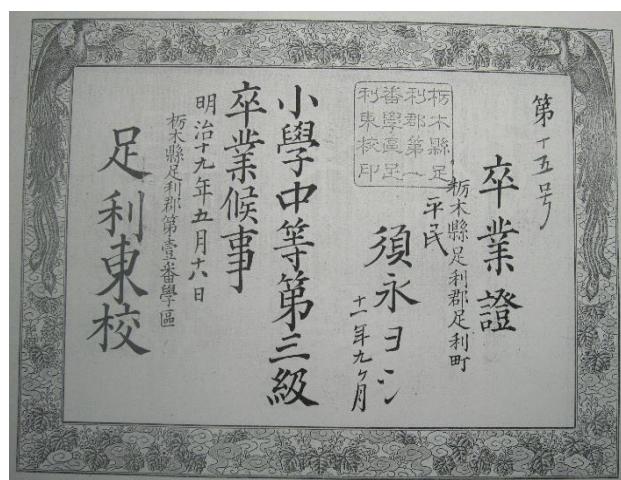 第十五号
卒業證
栃木縣足利郡足利町
平民
須永ヨシ
十一年九ヶ月
栃木縣足
利郡第一
番學區足
利東校印
小學中等第三級
卒業候事
明治十九年五月十六日
栃木縣足利郡第壹番學區
足利東校